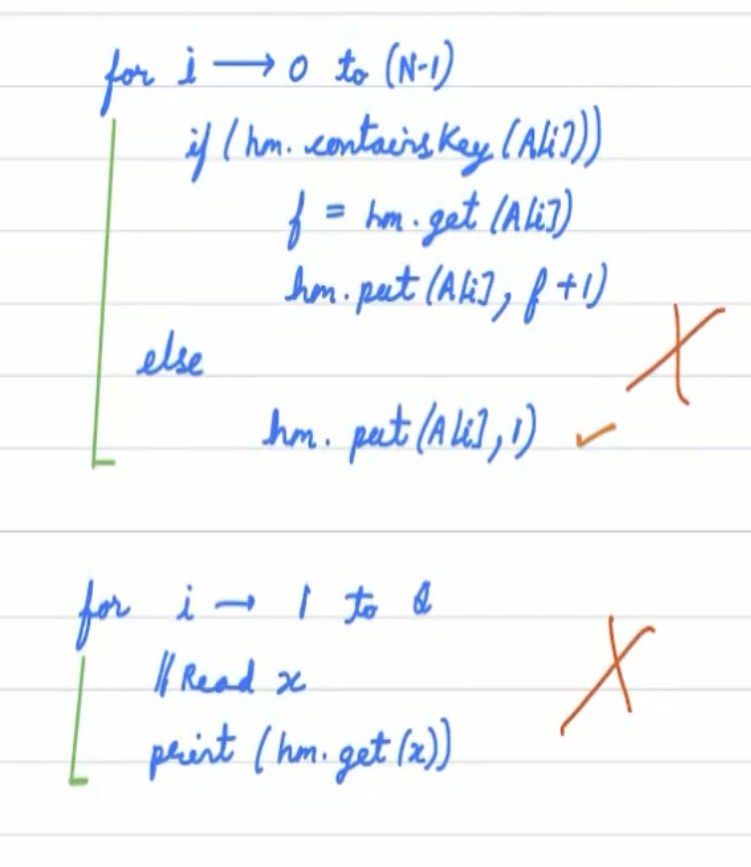 for i → 0 to (N-1)
if (hm. contains Key (A[i]))
f = hm. get (A[i])
hm. put (A[i], f +1)
else
hm. put (A[i], 1) ✓
for i → 1 to Q
// Read x
print (hm. get (x))